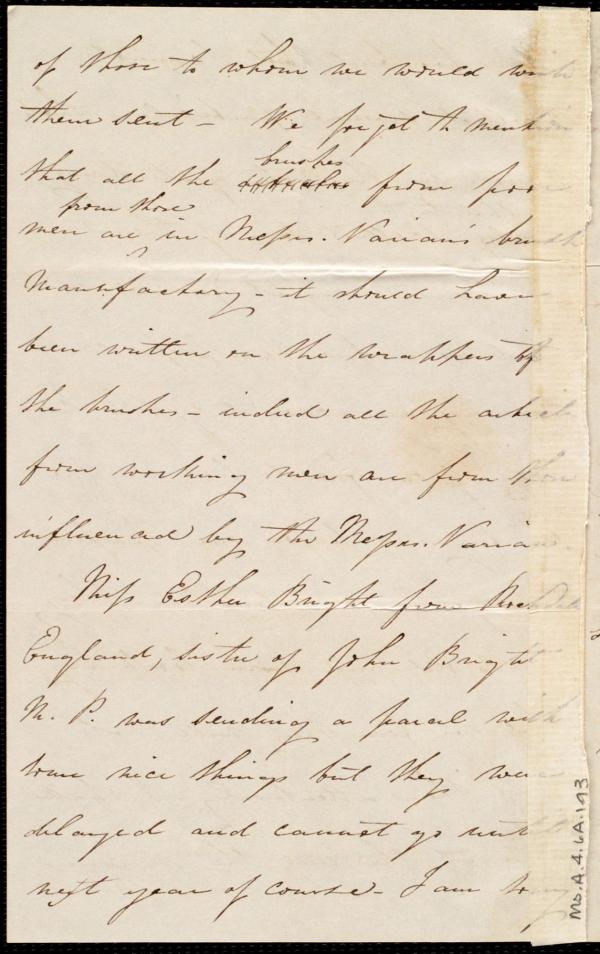 of those to whom we would wish
them sent - We forget to mention
that all the brushes from poor
from those
men are in Messrs. Varian's brush
Manufactory - it should have
been written on the wrappers of
the brushes - indeed all the articles
from working men are from those
influenced by the Messrs. Varian.
Miss Esther Bright from Rochdale
England, sister of John Bright
M. P. was sending a parcel with
some nice things but they were
delayed and cannot go until
next year of course - I am sorry
Ms. A. 4. 6A. 193